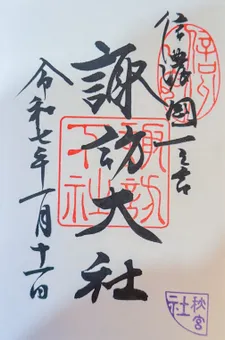 信濃國一之宮
諏訪大社
令和七年一月十一日
諏訪大社
秋宮
社